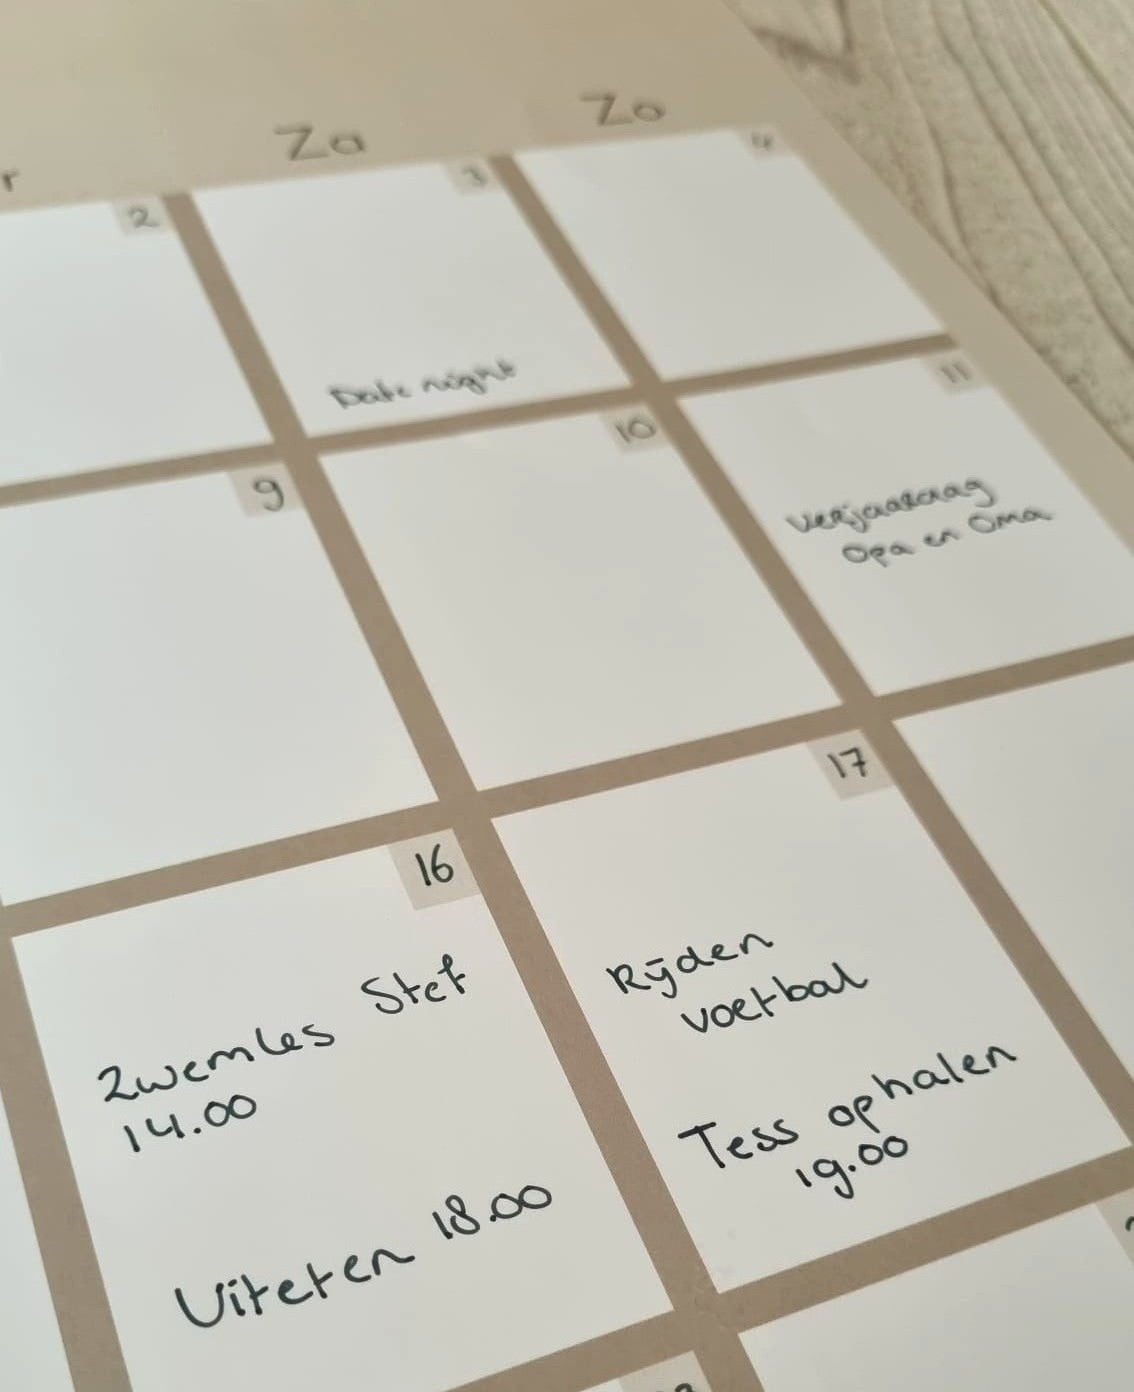 r Za Zo
2 3 4
Date night
9 10 11
Verjaardag
Opa en Oma
16
Zwemles Stef
14.00
Uiteten 18.00
17
Rijden
voetbal
Tess ophalen
19.00